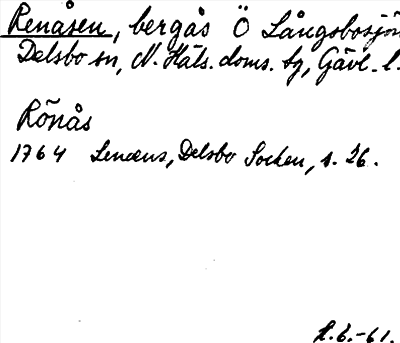 Renåsen, bergås Ö Långsbosjön
Delsbo sn, N. Häls. doms. sg, Gävl. l.
Rönås
1764 Lenæus, Delsbo Socken, s. 26.
-61.